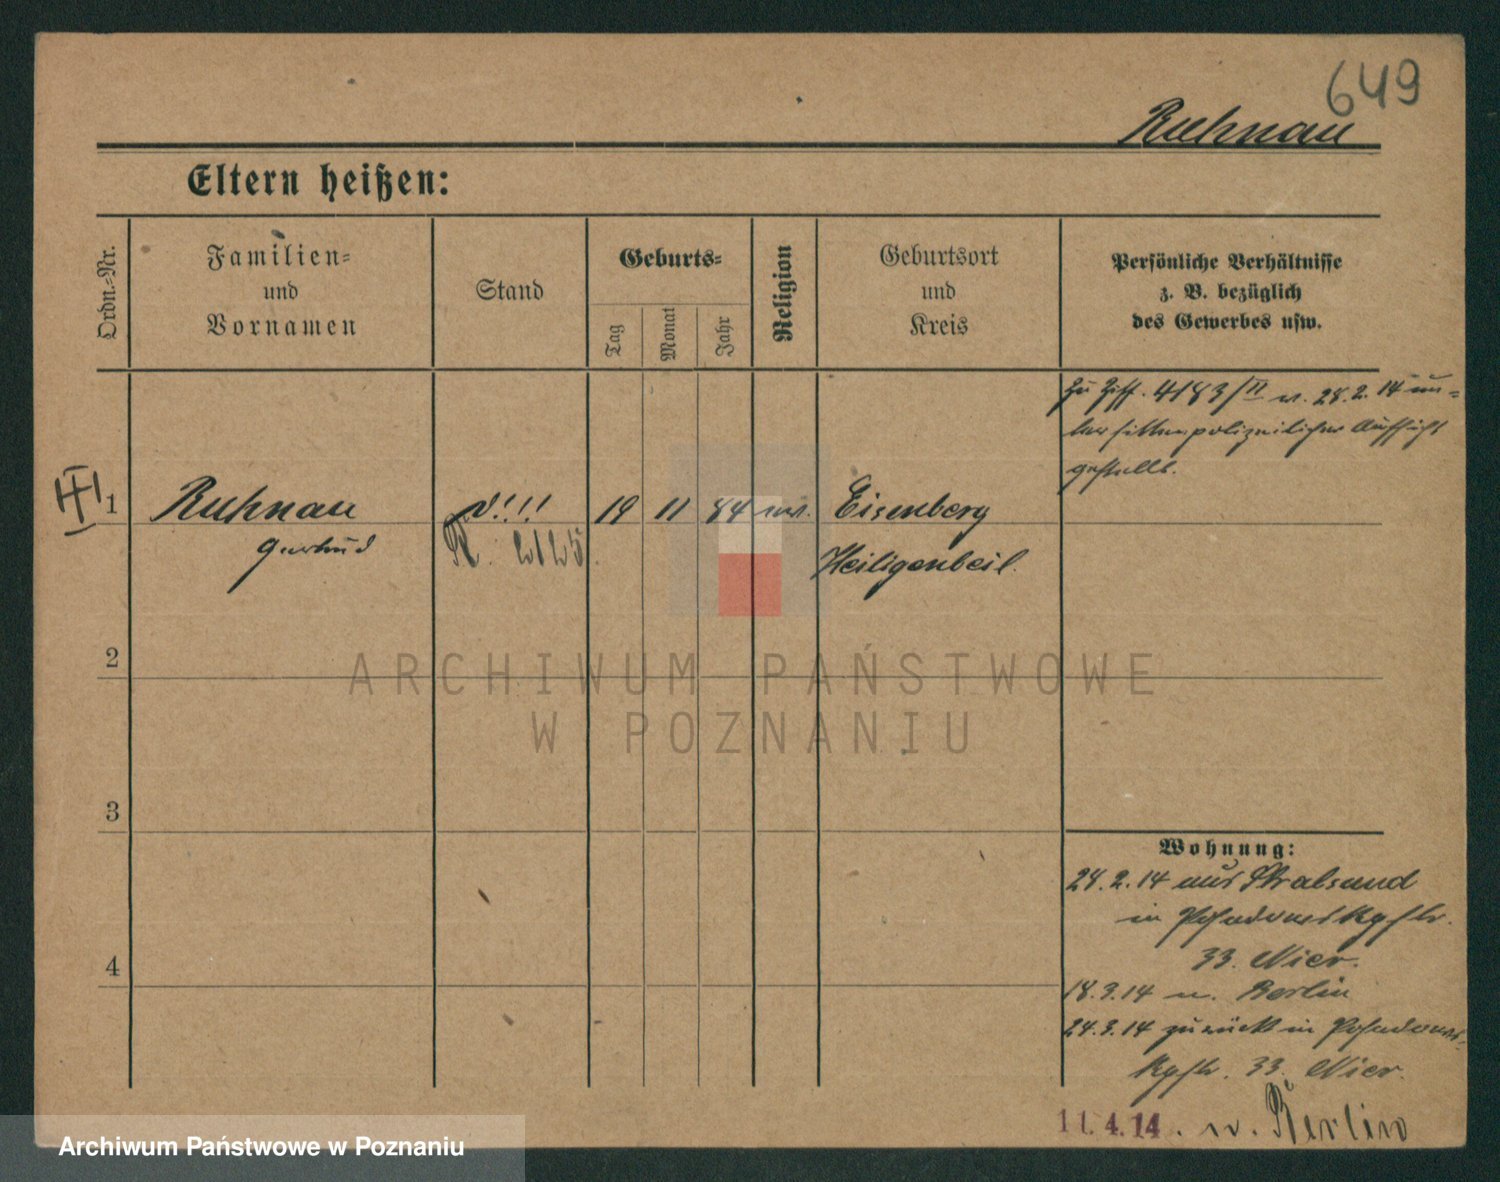 649
Ruhnau
Eltern heißen:
Ordn.-Nr.
Familien-
und
Vornamen
Stand
Geburts-
Tag
Monat
Jahr
Religion
Geburtsort
und
Kreis
Persönliche Verhältnisse
z. B. bezüglich
des Gewerbes usw.
zu Ziff. 4183/II v. 28.2.14 un-
ter sittenpolizeilicher Aufsicht
gestellt.
1
Ruhnau
Gertrud
19 11 84 ev.
Eisenberg
Heiligenbeil.
2
3
4
Wohnung:
28.2.14 aus Stralsund
in
33. Nier.
18.3.14 n. Berlin
24.3.14 zurück in
33. Nier.
11.4.14. n. Berlin
ARCHIWUM PAŃSTWOWE
W POZNANIU
Archiwum Państwowe w Poznaniu